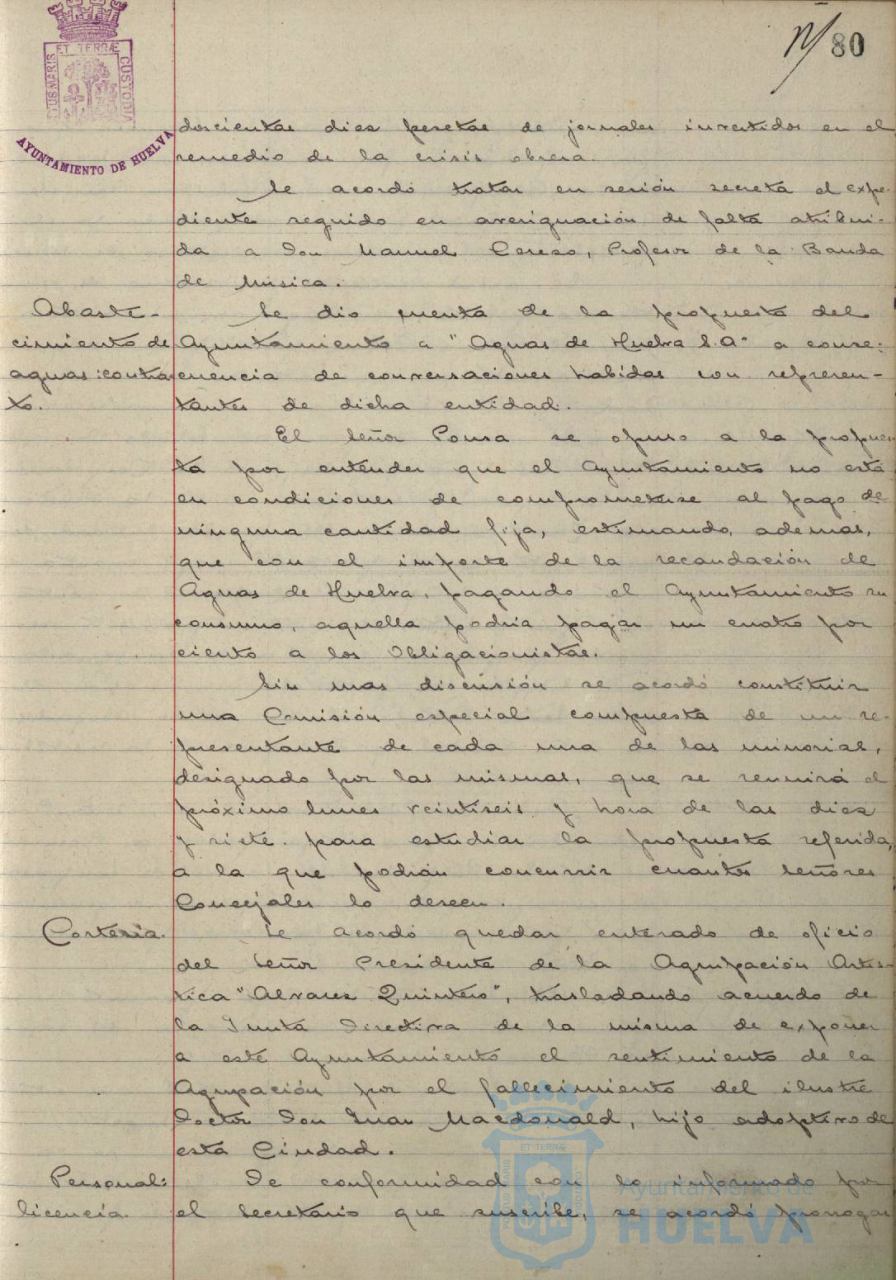 80
ET TERRÆ
CUSTODIA
AYUNTAMIENTO DE HUELVA
doscientas diez pesetas de jornales invertidos en el
remedio de la crisis obrera.
Se acordó tratar en sesión secreta el expe-
diente seguido en averiguación de falta atribui-
da a Don Manuel Cerezo, Profesor de la Banda
de Música.
Abaste-
cimiento de
aguas: contra-
to.
Se dio cuenta de la propuesta del
Ayuntamiento a "Aguas de Huelva S.A" a conse-
cuencia de conversaciones habidas con represen-
tantes de dicha entidad.
El Señor Ponsa se opuso a la propues-
ta por entender que el Ayuntamiento no está
en condiciones de comprometerse al pago de
ninguna cantidad fija, estimando, ademas,
que con el importe de la recaudación de
Aguas de Huelva, pagando el Ayuntamiento su
consumo, aquella podria pagar un cuatro por
ciento a los Obligacionistas.
Sin mas discusión se acordó constituir
una Comisión especial compuesta de un re-
presentante de cada una de las minorias,
designado por las mismas, que se reunirá el
próximo lunes veintiseis y hora de las diez
y siete para estudiar la propuesta referida,
a la que podrán concurrir cuantos señores
Concejales lo deseen.
Cortesia.
Se acordó quedar enterado de oficio
del Señor Presidente de la Agrupación Artis-
tica "Alvarez Quintero", trasladando acuerdo de
la Junta Directiva de la misma de exponer
a este Ayuntamiento el sentimiento de la
Agrupación por el fallecimiento del ilustre
Doctor Don Juan Macdonald, hijo adoptivo de
esta Ciudad.
Personal:
licencia.
De conformidad con lo informado por
el Secretario que suscribe, se acordó prorrogar
Ayuntamiento de
HUELVA